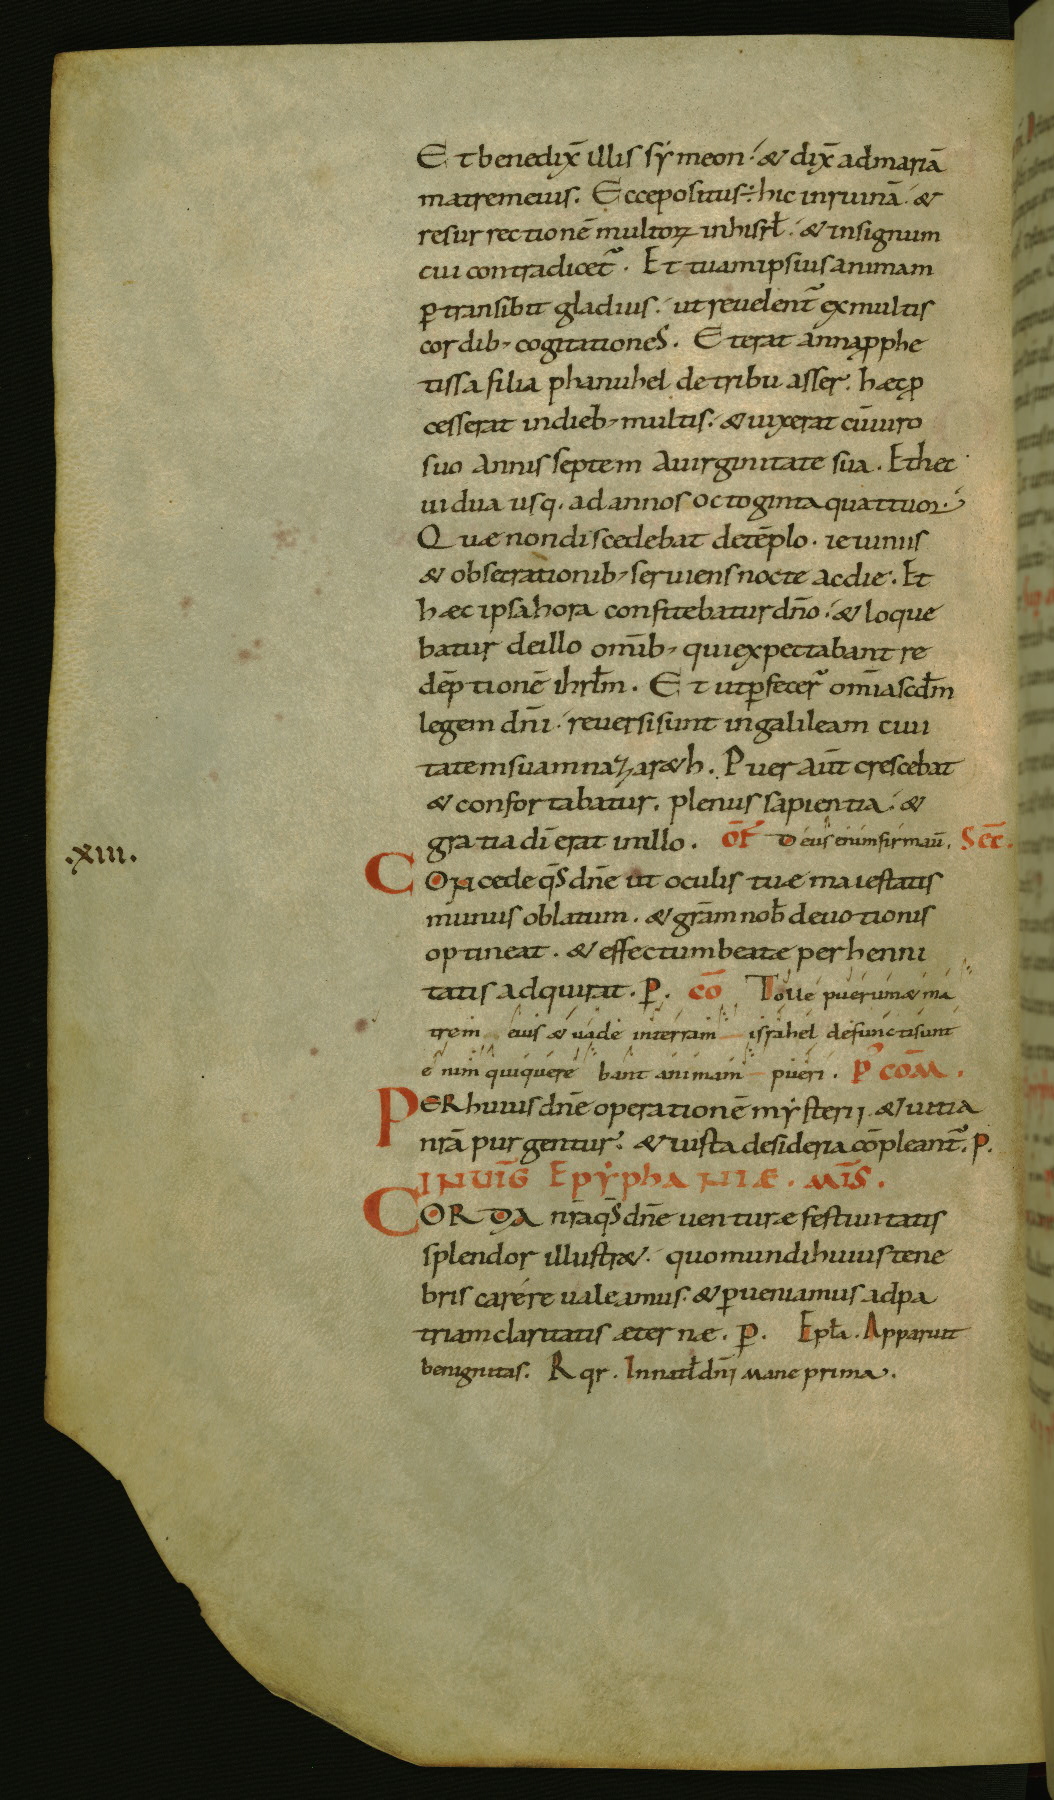 Et benedix̄ illis sẏmeon. & dix̄ ad mariā
matrem eius. Ecce positus÷ hic inruinā. &
resurrectionē multoꝝ inhisrl̄. & insignum
cui contradicet᷑. Et tuam ipsius animam
ꝑtransibit gladius. ut reuelent᷑ ex multis
cordib; cogitationes. Et erat anna ꝓphe
tissa filia phanuhel de tribu asser. haec ꝓ
cesserat in dieb; multis. & uixerat cū uiro
suo annis septem a uirginitate sua. Et hec
uidua usq. ad annos octoginta quattuor.
Quae non discedebat de tēplo. ieiuniis
& obsecrationib; seruiens nocte ac die. Et
haec ipsa hora confitebatur dn̄o. & loque
batur de illo om̄ib; qui expectabant re
dēptionē ihrl̄m. Et ut ꝑfecer᷑ om̄ia scd̄m
legem dn̄i. reuersi sunt in galileam ciui
tatem suam nazar&h. Puer aūt crescebat
& confortabatur. plenus sapientia. &
gratia dī erat in illo. OF̄ Deus enim firmaū. Sēc.
.xiii.
Concede qs̄ dn̄e ut oculis tuae maiestatis
munus oblatum. & grām nob̄ deuotionis
optineat. & effectum beatae perhenni
tatis adquirat. P̄. cō Tolle puerum & ma
trem eius & uade in terram israhel defuncti sunt
enim qui quere bant animam pueri. P̄ COM̄.
PER huius dn̄e operationē mẏsterij. & uitia
nrā purgentur. & iusta desideria cōpleant᷑. P.
IN UIḠ EpẏphaNIAE. MIS̄.
CORDA nrā qs̄ dn̄e uenturae festiuitatis
splendor illustr&. quo mundi huius tene
bris carere ualeamus. & ꝑueniamus ad pa
triam claritatis aeternae. P̄. Epl̄a. Apparuit
benignitas. R qr. In natl̄ dn̄i mane prima.